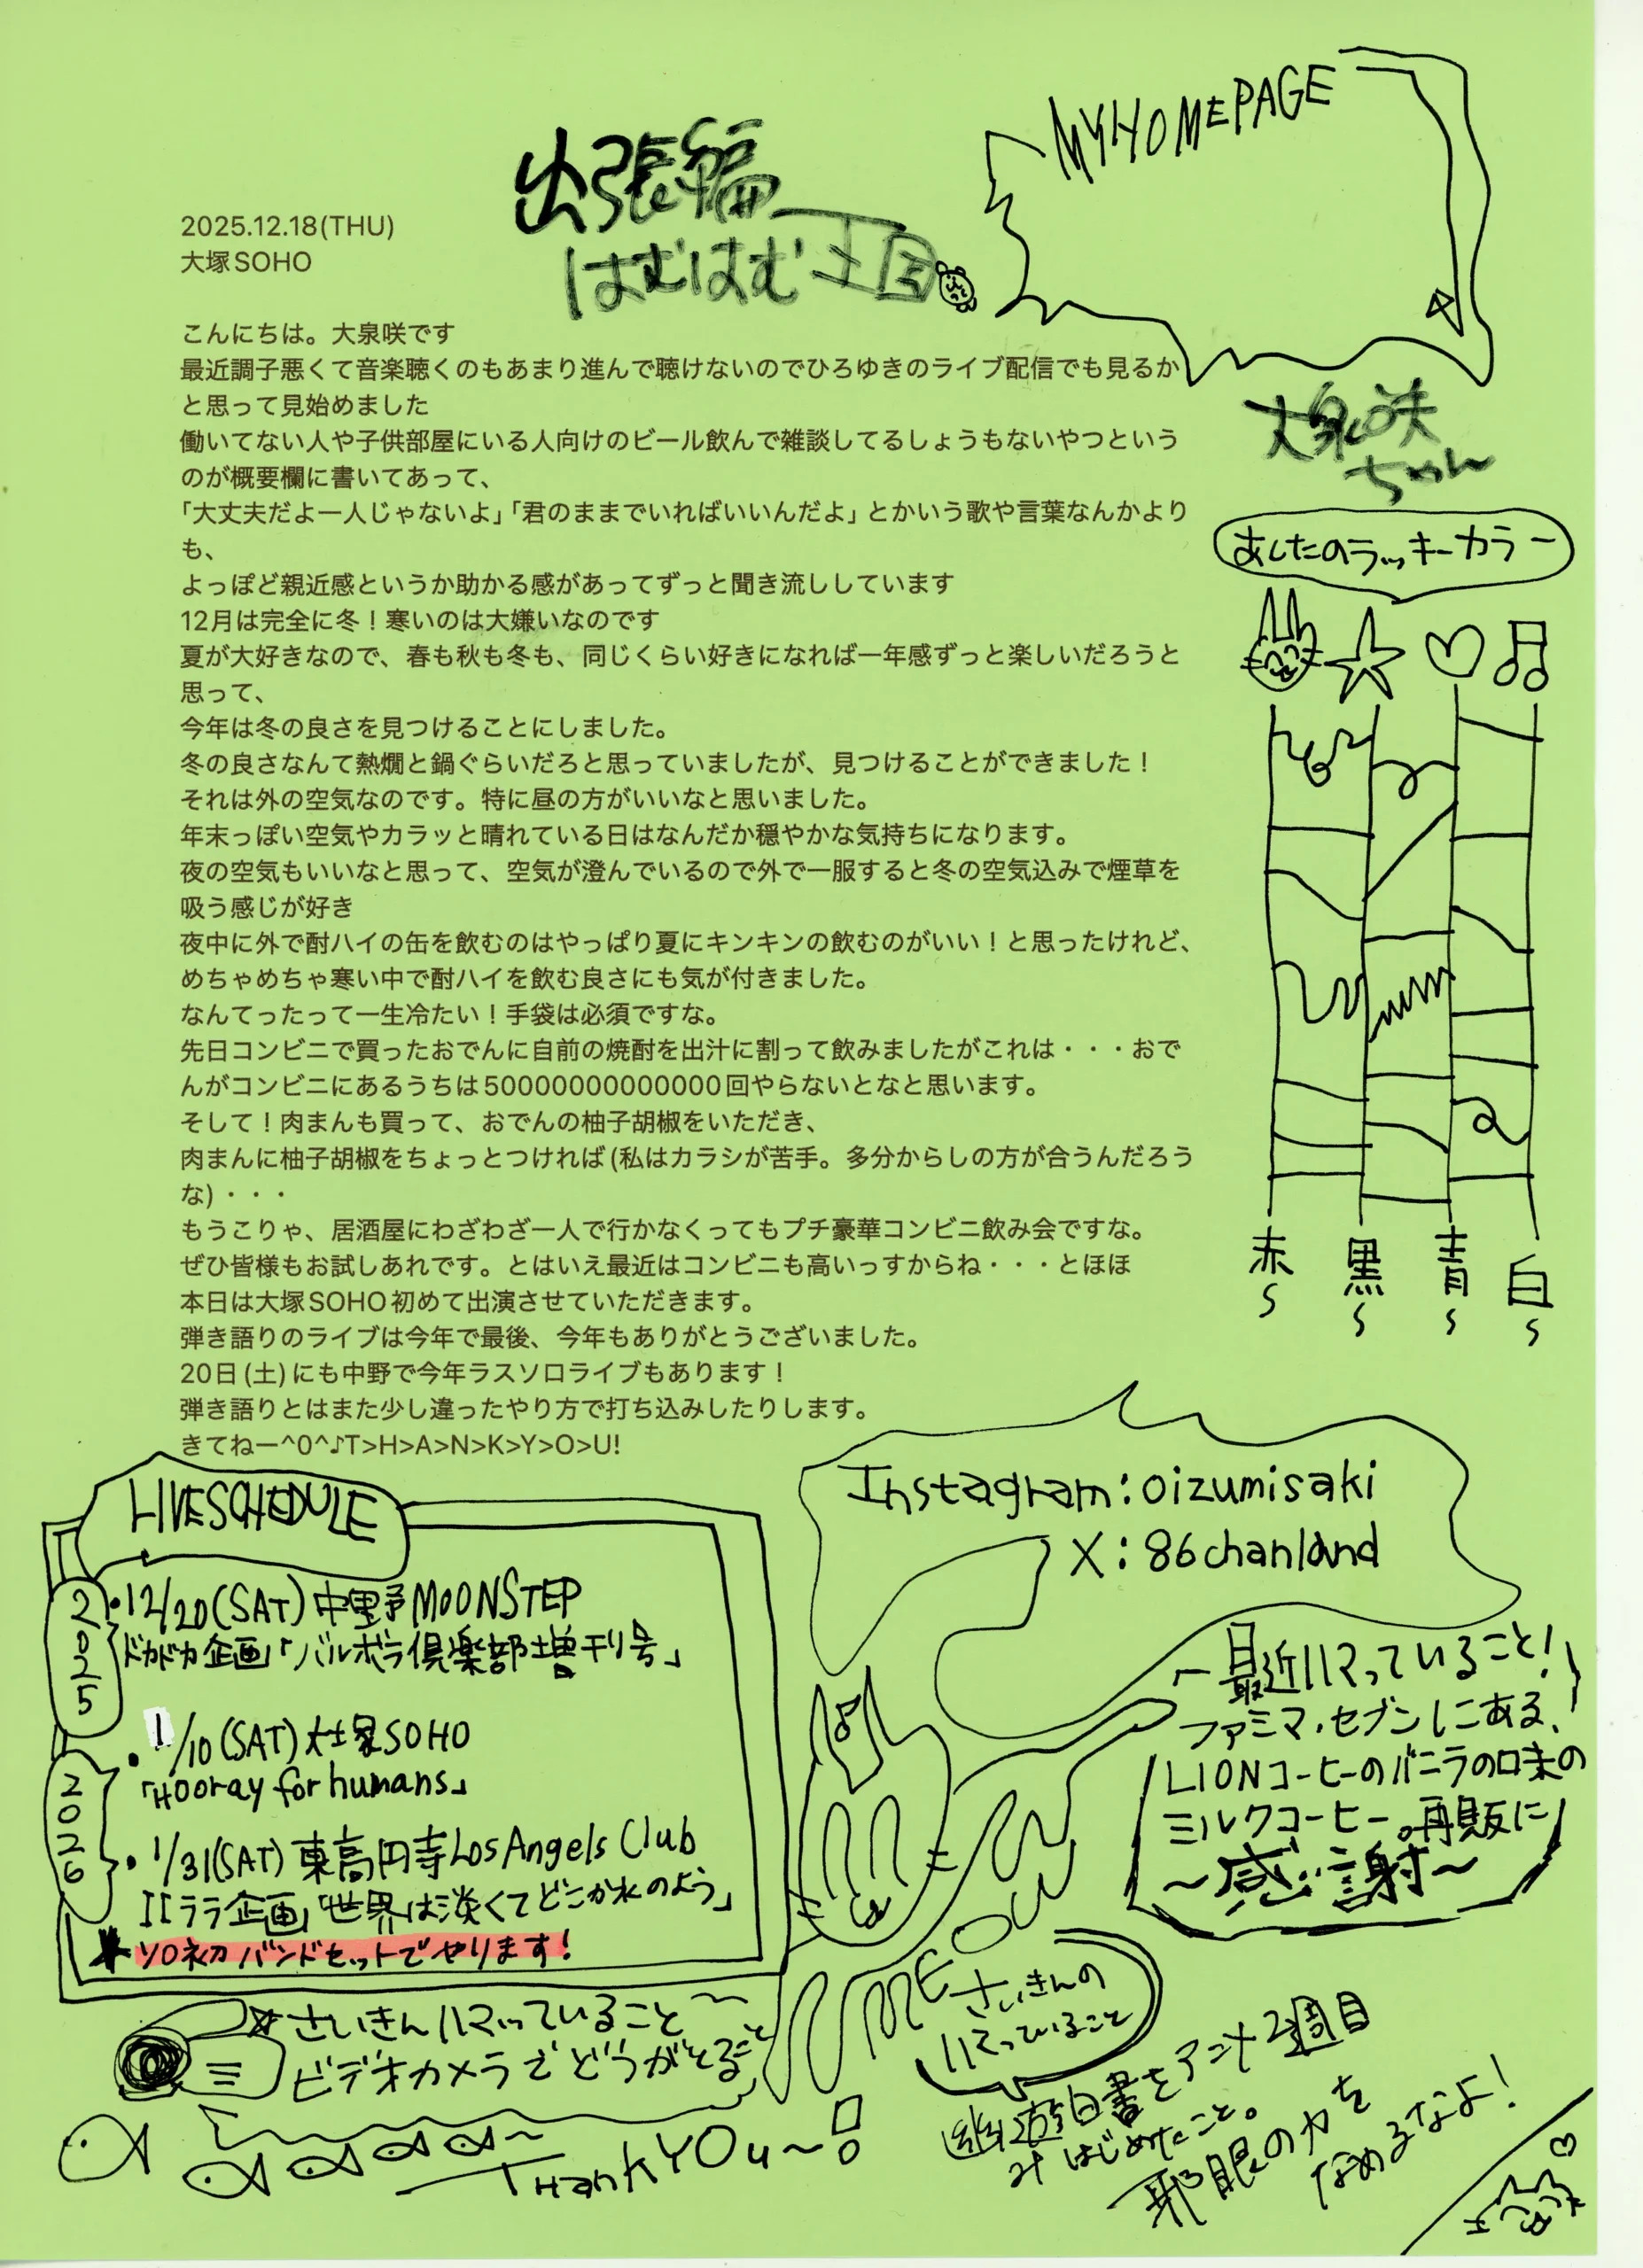 MYHOMEPAGE
出張編
はむはむ王国
2025.12.18(THU)
大塚SOHO
こんにちは。大泉咲です
最近調子悪くて音楽聴くのもあまり進んで聴けないのでひろゆきのライブ配信でも見るか
と思って見始めました
働いてない人や子供部屋にいる人向けのビール飲んで雑談してるしょうもないやつという
のが概要欄に書いてあって、
「大丈夫だよ一人じゃないよ」「君のままでいればいいんだよ」とかいう歌や言葉なんかより
も、
よっぽど親近感というか助かる感があってずっと聞き流ししています
12月は完全に冬！寒いのは大嫌いなのです
夏が大好きなので、春も秋も冬も、同じくらい好きになれば一年感ずっと楽しいだろうと
思って、
今年は冬の良さを見つけることにしました。
冬の良さなんて熱燗と鍋ぐらいだろと思っていましたが、見つけることができました！
それは外の空気なのです。特に昼の方がいいなと思いました。
年末っぽい空気やカラッと晴れている日はなんだか穏やかな気持ちになります。
夜の空気もいいなと思って、空気が澄んでいるので外で一服すると冬の空気込みで煙草を
吸う感じが好き
夜中に外で酎ハイの缶を飲むのはやっぱり夏にキンキンの飲むのがいい！と思ったけれど、
めちゃめちゃ寒い中で酎ハイを飲む良さにも気が付きました。
なんてったって一生冷たい！手袋は必須ですな。
先日コンビニで買ったおでんに自前の焼酎を出汁に割って飲みましたがこれは・・・おで
んがコンビニにあるうちは50000000000000回やらないとなと思います。
そして！肉まんも買って、おでんの柚子胡椒をいただき、
肉まんに柚子胡椒をちょっとつければ(私はカラシが苦手。多分からしの方が合うんだろう
な)・・・
もうこりゃ、居酒屋にわざわざ一人で行かなくってもプチ豪華コンビニ飲み会ですな。
ぜひ皆様もお試しあれです。とはいえ最近はコンビニも高いっすからね・・・とほほ
本日は大塚SOHO初めて出演させていただきます。
弾き語りのライブは今年で最後、今年もありがとうございました。
20日(土)にも中野で今年ラスソロライブもあります！
弾き語りとはまた少し違ったやり方で打ち込みしたりします。
きてねー^0^♪T>H>A>N>K>Y>O>U!
大泉咲
ちゃん
あしたのラッキーカラー
赤〜
黒〜
青〜
白〜
LIVESCHEDULE
2025
・12/20(SAT)中野MOONSTEP
ドカドカ企画「バルボラ倶楽部増刊号」
2026
・1/10(SAT)大塚SOHO
「Hooray for humans」
・1/31(SAT)東高円寺Los Angels Club
ララ企画「世界は淡くてどこか水のよう」
ソロ初バンドセットでやります!
Instagram:oizumisaki
X:86chanland
最近ハマっていること!
ファミマ・セブンにある、
LIONコーヒーのバニラの味の
ミルクコーヒー。再販に
〜感謝〜
MEOW
さいきんハマっていること〜
ビデオカメラでどうがとること
THankYOu〜!
さいきんの
ハマっていること
幽遊白書をアニメ2週目
みはじめたこと。
邪眼の力を
なめるなよ!